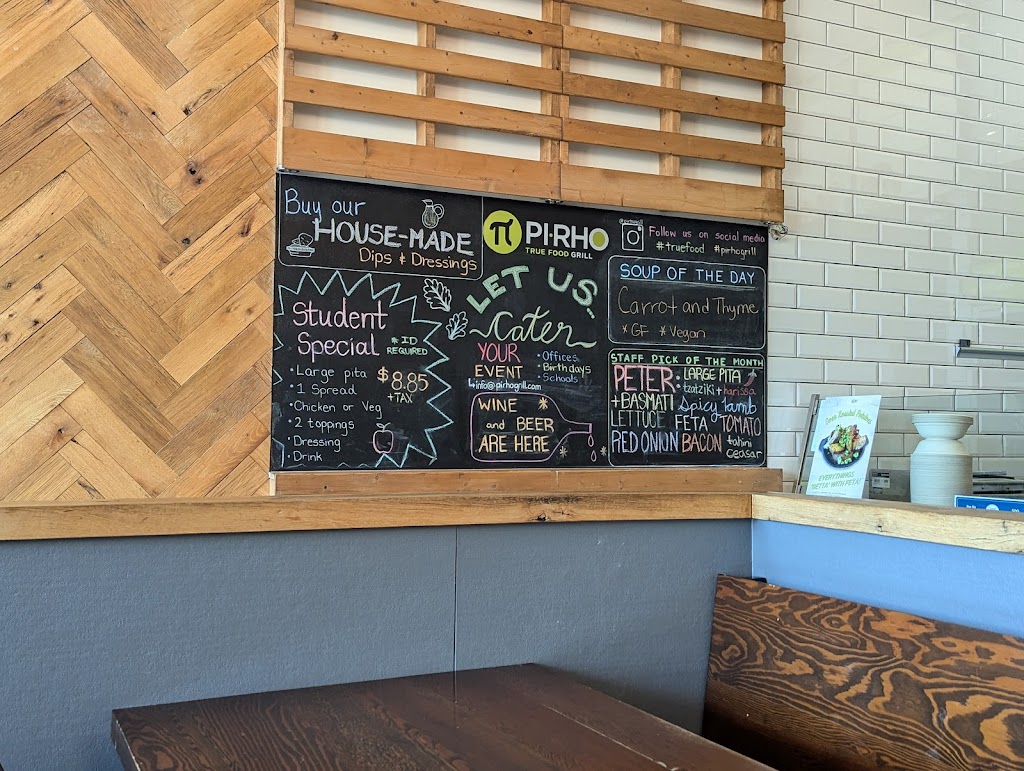 Buy our
HOUSE-MADE
Dips & Dressings
Student
Special
* ID
REQUIRED
• Large pita
• 1 Spread
• Chicken or Veg
• 2 toppings
• Dressing
• Drink
$8.85
+TAX
π PI·RHO
TRUE FOOD GRILL
LET US...
Cater
YOUR
EVENT
• Offices
• Birthdays
• Schools
info@pirhogrill.com
WINE
and BEER
ARE HERE
Follow us on social media
#truefood #pirhogrill
SOUP OF THE DAY
Carrot and Thyme
* GF * Vegan
STAFF PICK OF THE MONTH
PETER: LARGE PITA
tzatziki + harissa
+BASMATI spicy lamb
LETTUCE FETA TOMATO
RED ONION BACON tahini
ceasar
EVERYTHINGS
BETTA' WITH FETA!